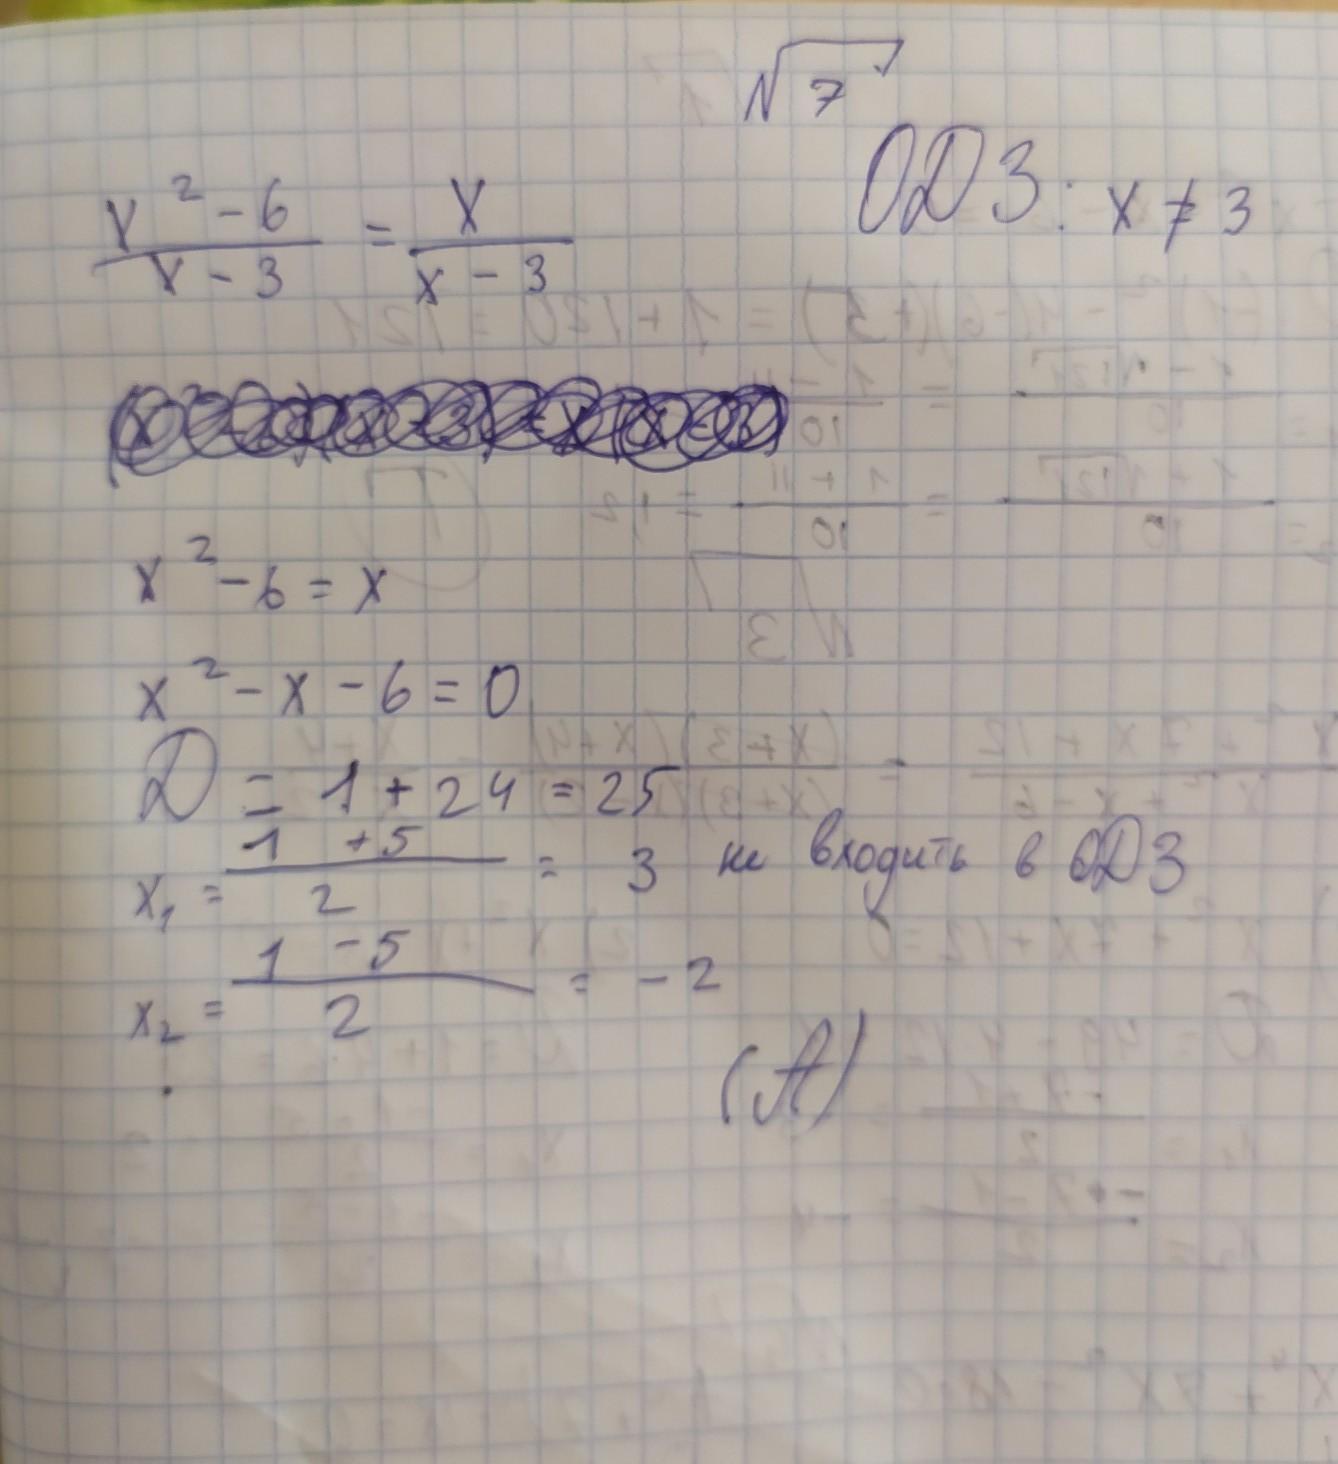 №7
ОДЗ: x ≠ 3
x² - 6 / x - 3 = x / x - 3
x² - 6 = x
x² - x - 6 = 0
D = 1 + 24 = 25
x₁ = 1 + 5 / 2 = 3 не входить в ОДЗ
x₂ = 1 - 5 / 2 = - 2
(А)